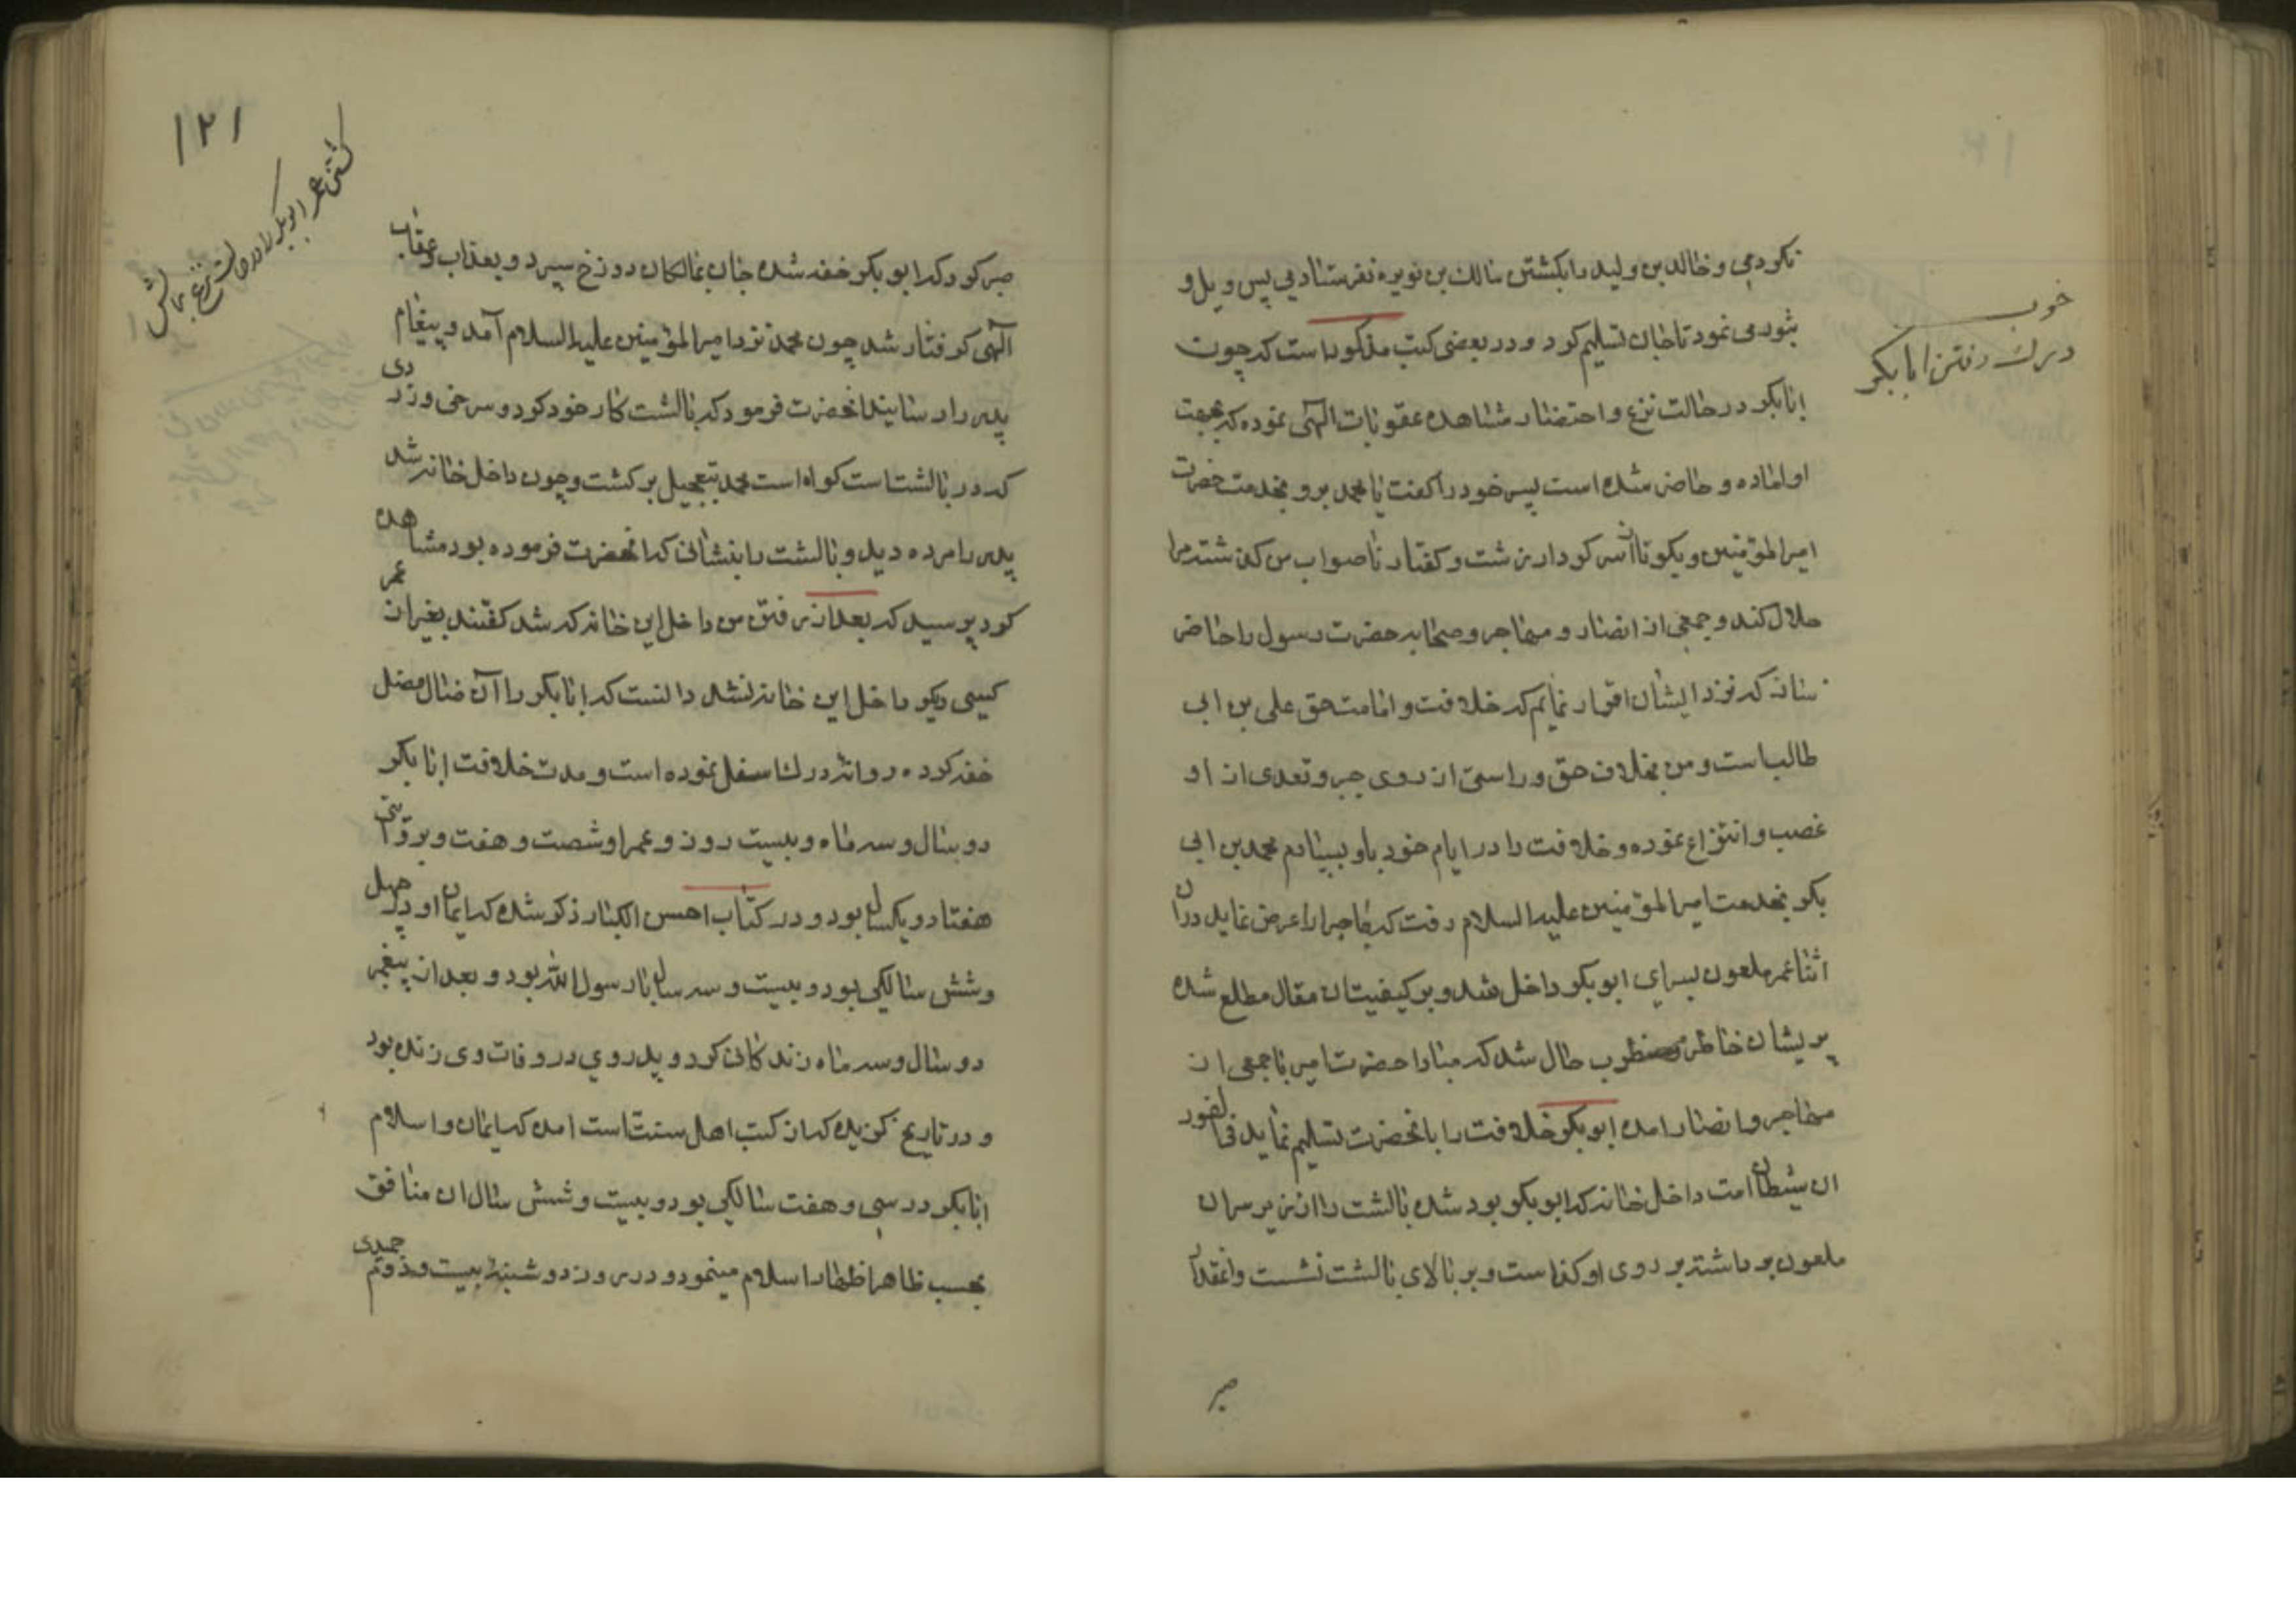 نکردمی و خالد بن ولید را بکشتن مالک بن نویره نفرستادمی پس ویل و
ثبور می نمود تا جان تسلیم کرد و در بعضی کتب مذکور است که چون
ابابکر در حالت نزع و احتضار مشاهده عقوبات الهی نموده که بجهت
او اماده و حاضر شده است پسر خود را گفت یا محمد برو بخدمت حضرت
امیرالمؤمنین و بگو تا از سر کردار زشت و گفتار ناصواب من گذشته مرا
حلال کند و جمعی از انصار و مهاجر و صحابه حضرت رسول را حاضر
سازد که نزد ایشان اقرار نمایم که خلافت و امامت حق علی بن ابی
طالب است و من بخلاف حق و راستی از روی جبر و تعدی از او
غصب و انتزاع نموده و خلافت را در ایام خود باو بسپارم محمد بن ابی
بکر بخدمت امیرالمؤمنین علیه السلام رفت که ماجرا را عرض نماید در آن
اثنا عمر ملعون بسرای ابوبکر داخل شد و بر کیفیت ان مقال مطلع شده
پریشان خاطر و مضطرب حال شد که مبادا حضرت امیر با جمعی از
مهاجر و انصار امده ابوبکر خلافت را بانحضرت تسلیم نماید فی الفور
ان شیطان امت داخل خانه که ابوبکر بود شده بالشت را از زیر سر ان
ملعون برداشته بر روی او گذاست و بر بالای بالشت نشست و انقدر
صبر
خوب
درک رفتن ابابکر
۱۲۱
کشتن عمر ابوبکر را در حالت نزع ببالش
صبر کرد که ابوبکر خفه شده جان بمالکان دوزخ سپرد و بعذاب و عقاب
الهی گرفتار شد چون محمد نزد امیرالمؤمنین علیه السلام آمد و پیغام
پدر را رسانید انحضرت فرمود که بالشت کار خود کرد و سرخی و زردی
که در بالشت است گواه است محمد بتعجیل برگشت و چون داخل خانه شد
پدر را مرده دید و بالشت را بنشانی که انحضرت فرموده بود مشاهده
کرد پرسید که بعد از رفتن من داخل این خانه که شد گفتند بغیر از عمر
کسی دیگر داخل این خانه نشد دانست که ابابکر را آن ضال مضل
خفه کرده روانه درک اسفل نموده است و مدت خلافت ابابکر
دو سال و سه ماه و بیست روز و عمر او شصت و هفت و بروایتی
هفتاد و یکسال بود و در کتاب احسن الکبار ذکر شده که ایمان او در چهل
و شش سالگی بود و بیست و سه سال با رسول الله بود و بعد از پیغمبر
دو سال و سه ماه زندگانی کرد و پدر وی در وفات وی زنده بود
و در تاریخ گزیده که از کتب اهل سنت است امده که ایمان و اسلام
ابابکر در سی و هفت سالگی بود و بیست و شش سال ان منافق
بحسب ظاهر اظهار اسلام مینمود و در روز دوشنبه بیست و دوم جمیدی